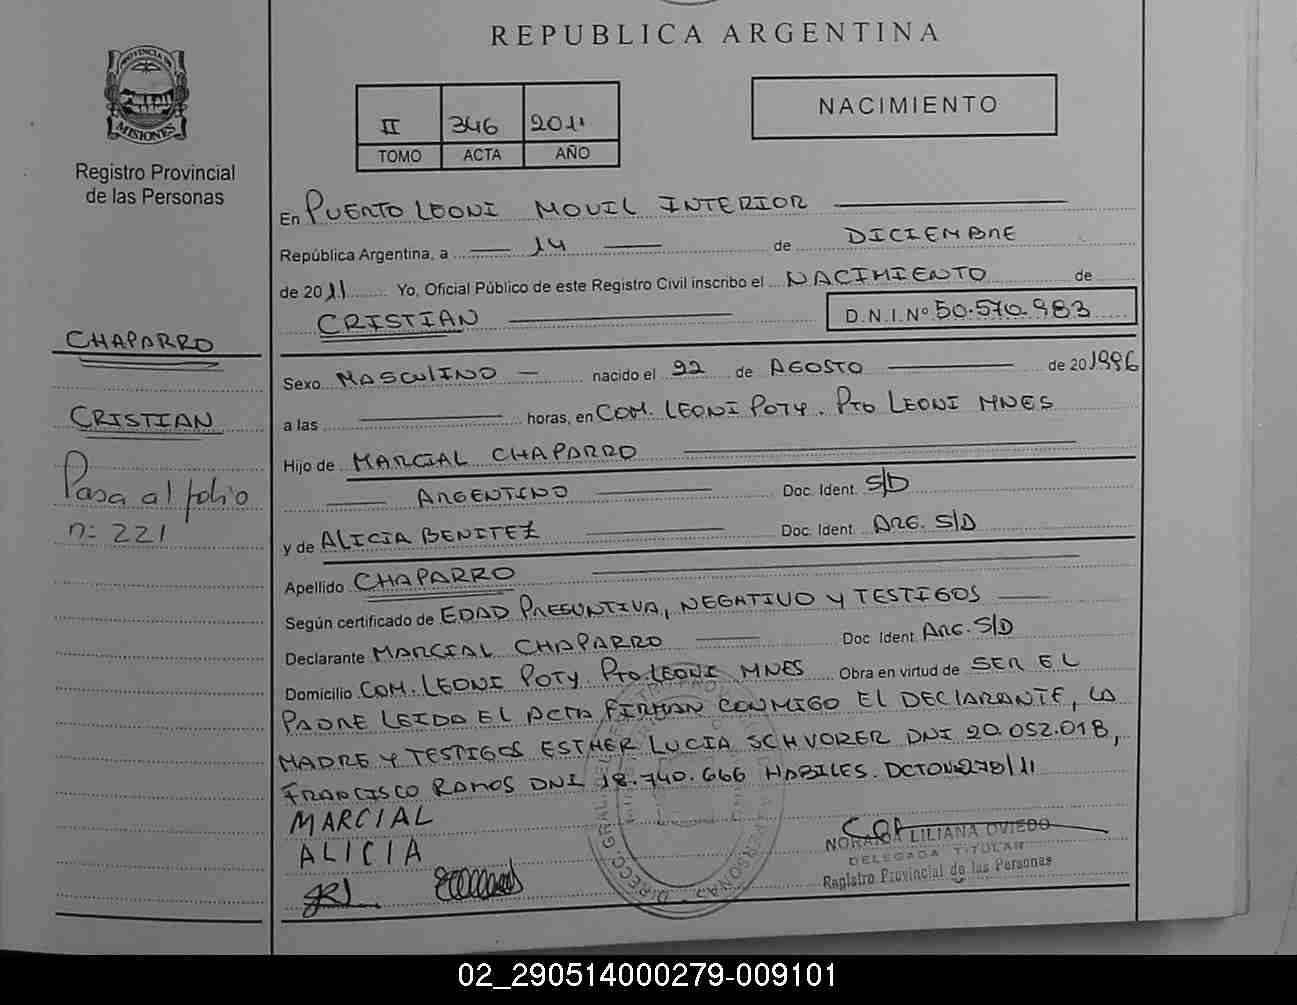 REPUBLICA ARGENTINA
PROVINCIA DE
MISIONES
Registro Provincial
de las Personas
II 346 2011
TOMO ACTA AÑO
NACIMIENTO
En PUERTO LEONI MOVIL INTERIOR
República Argentina, a 14 de DICIEMBRE
de 2011 Yo, Oficial Público de este Registro Civil inscribo el NACIMIENTO de
CRISTIAN D.N.I.Nº 50.570.983
CHAPARRO
CRISTIAN
Pasa al folio
n: 221
Sexo MASCULINO nacido el 22 de AGOSTO de 201996
a las horas, en COM. LEONI POTY. PTO LEONI MNES
Hijo de MARCIAL CHAPARRO
ARGENTINO Doc. Ident. S/D
y de ALICIA BENITEZ Doc. Ident. ARG. S/D
Apellido CHAPARRO
Según certificado de EDAD PRESUNTIVA, NEGATIVO Y TESTIGOS
Declarante MARCIAL CHAPARRO Doc. Ident. ARG. S/D
Domicilio COM. LEONI POTY. PTO LEONI MNES Obra en virtud de SER EL
PADRE LEIDO EL ACTA FIRMAN CONMIGO EL DECLARANTE, LA
MADRE Y TESTIGOS ESTHER LUCIA SCHVORER DNI 20.052.018,
FRANCISCO RAMOS DNI 18.740.666 HABILES. 278/11
MARCIAL
ALICIA
LILIANA OVIEDO
DELEGADA TITULAR
Registro Provincial de las Personas
02_290514000279-009101